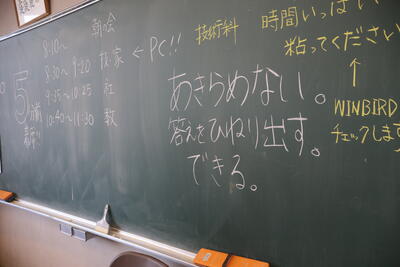 8:10〜 朝の会
8:30〜9:20 技/家 ← PC!!
9:35〜10:25 社
10:40〜11:30 数
5
技術科
時間いっぱい
粘ってください
↑
WINBIRD
チェックします
あきらめない。
答えをひねり出す。
できる。